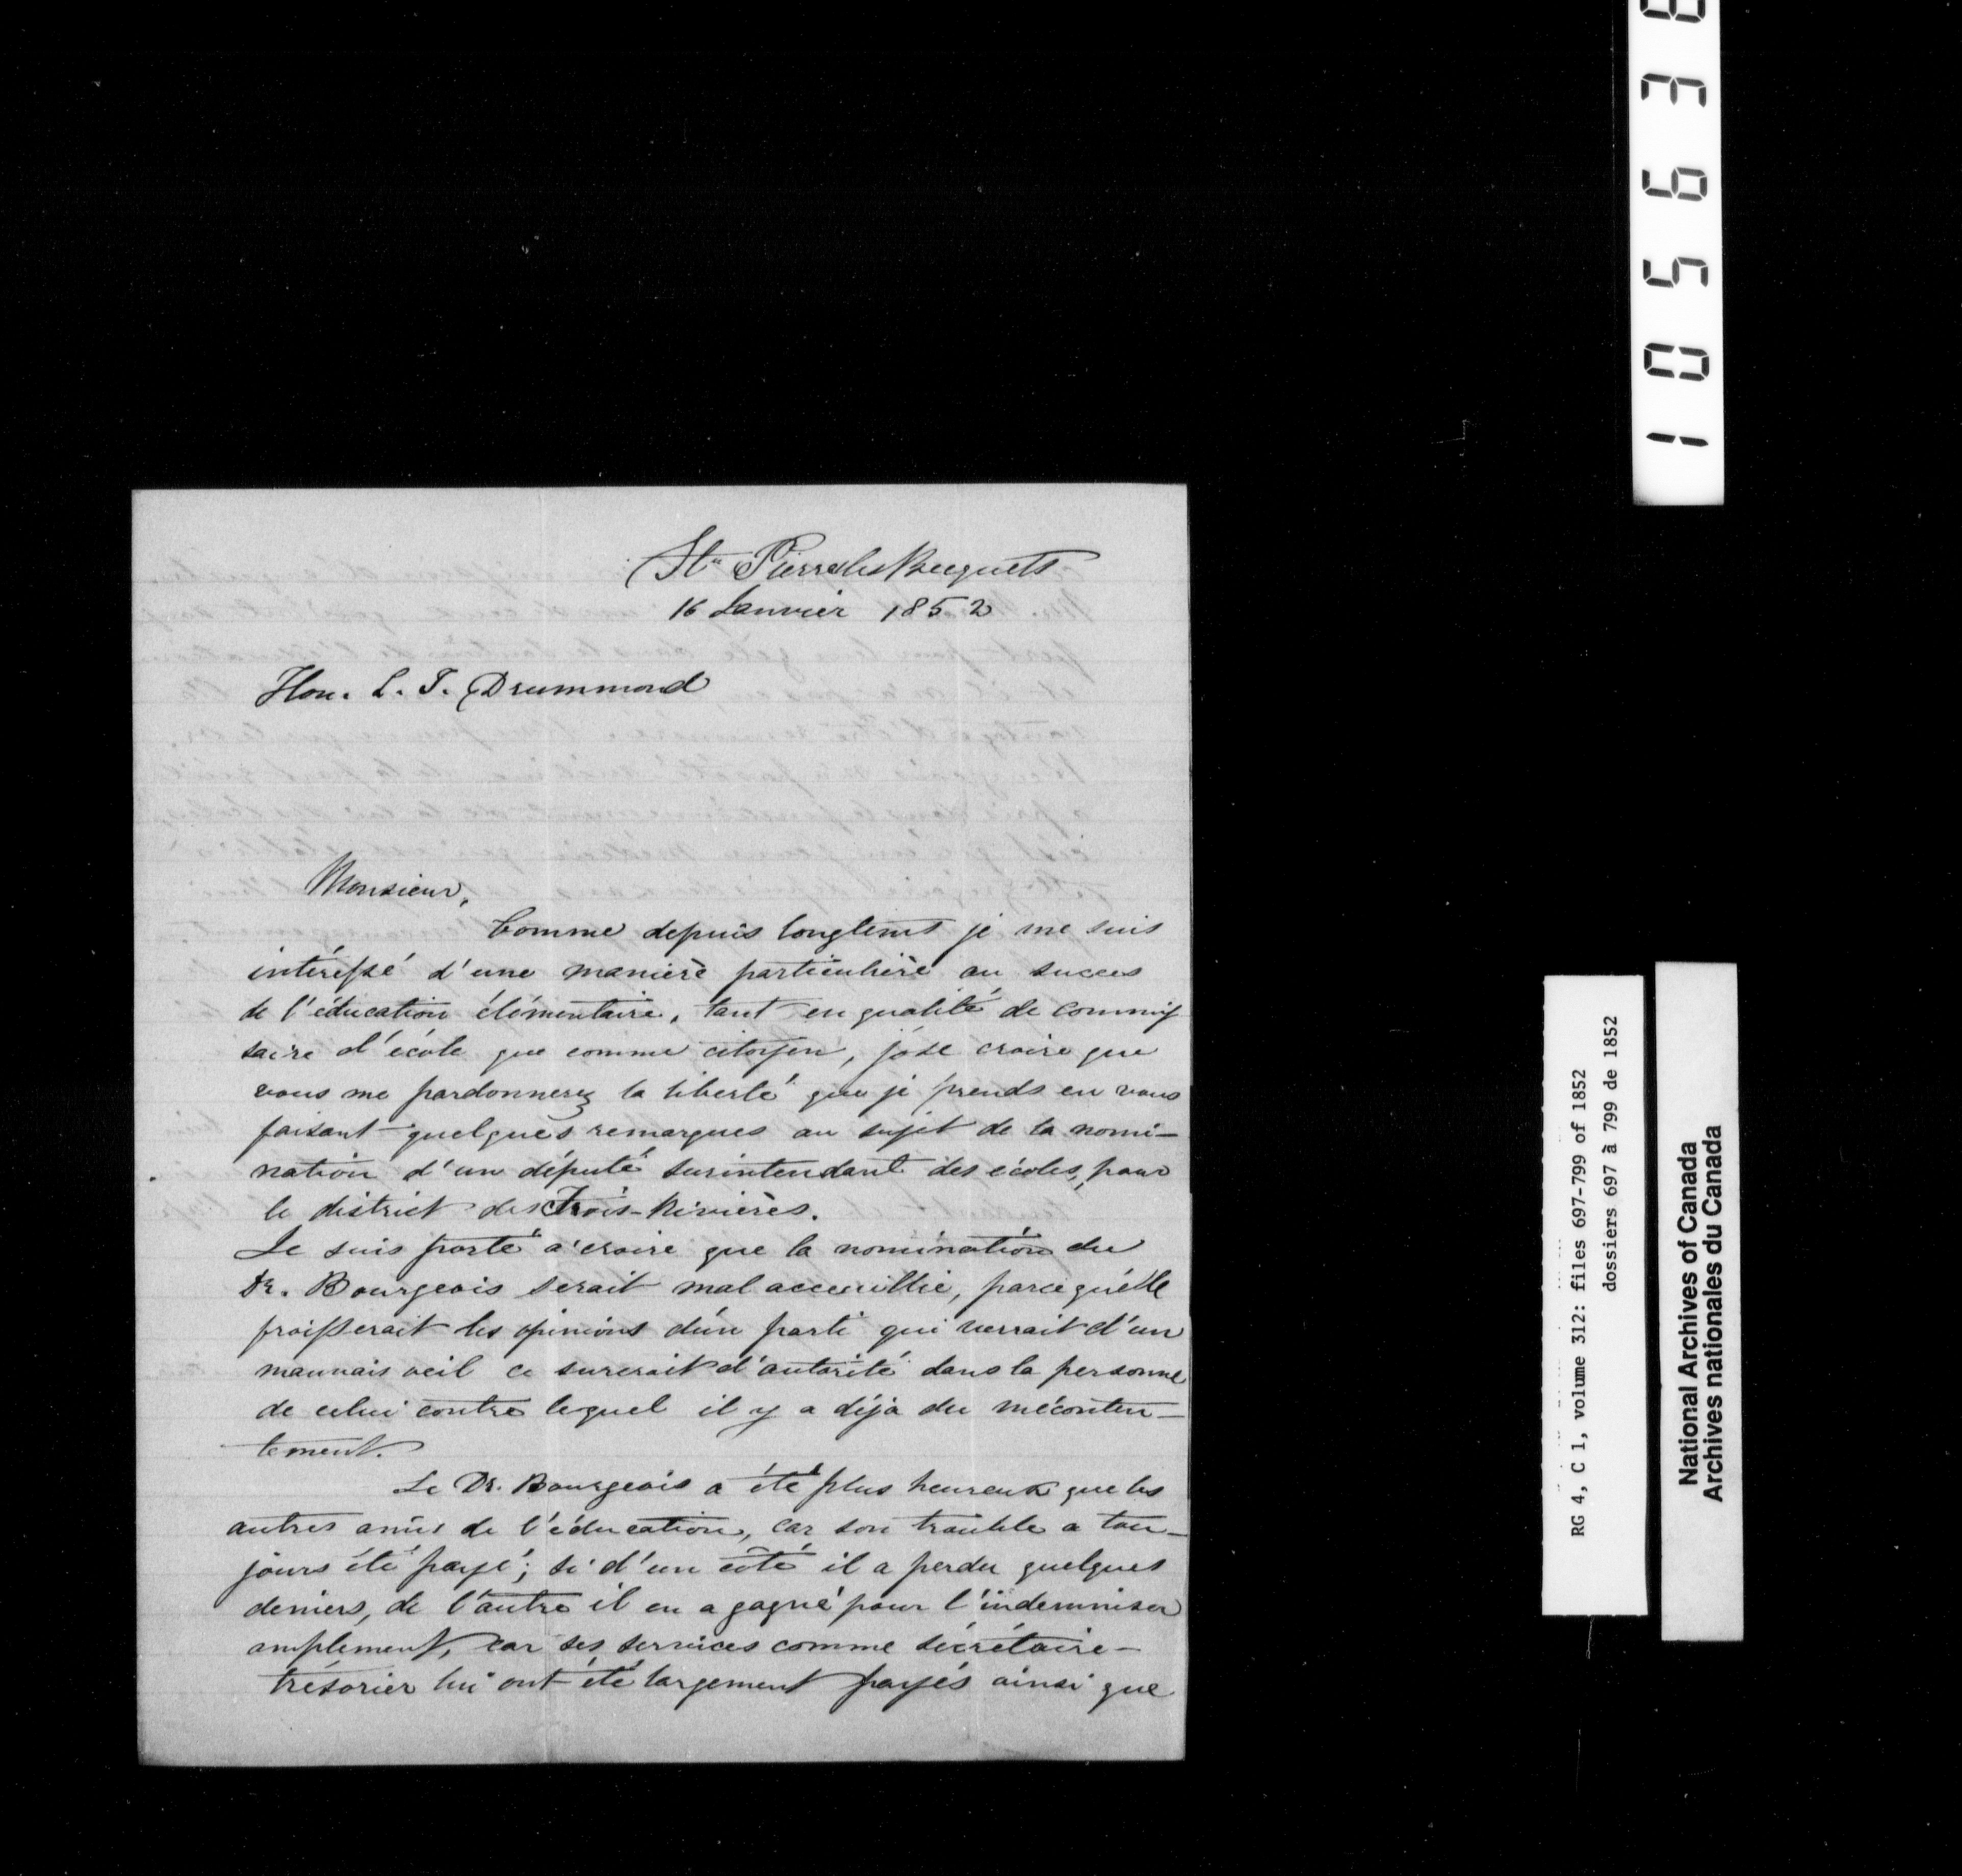 St. Pierre les Becquets
16 Janvier 1852
Hon. L. T. Drummond
Monsieur,
Comme depuis longtems je me suis
intéressé d'une manière particulière au succes
de l'éducation élémentaire, tant en qualité de commis
saire d'école que comme citoyen, j'ose croire que
vous me pardonnerez la liberté que je prends en vous
faisant quelques remarques au sujet de la nomi-
nation d'un député surintendant des écoles, pour
le district des Trois-Rivières.
Je suis porté à croire que la nomination du
Dr. Bourgeois serait mal acceuillie, parcequ'elle
froisserait les opinions d'un parti qui verrait d'un
mauvais oeil ce surcroit d'autorité dans la personne
de celui contre lequel il y a déjà du méconten-
tement.
Le Dr. Bourgeois a été plus heureux que les
autres amis de l'éducation, car son trouble a tou-
jours été payé; si d'un côté il a perdu quelques
deniers, de l'autre il en a gagné pour l'indemniser
amplement, car ses services comme sécrétaire-
trésorier lui ont été largement payés ainsi que
1 0 5 6 3 8
RG 4, C 1, volume 312: files 697-799 of 1852
dossiers 697 à 799 de 1852
National Archives of Canada
Archives nationales du Canada